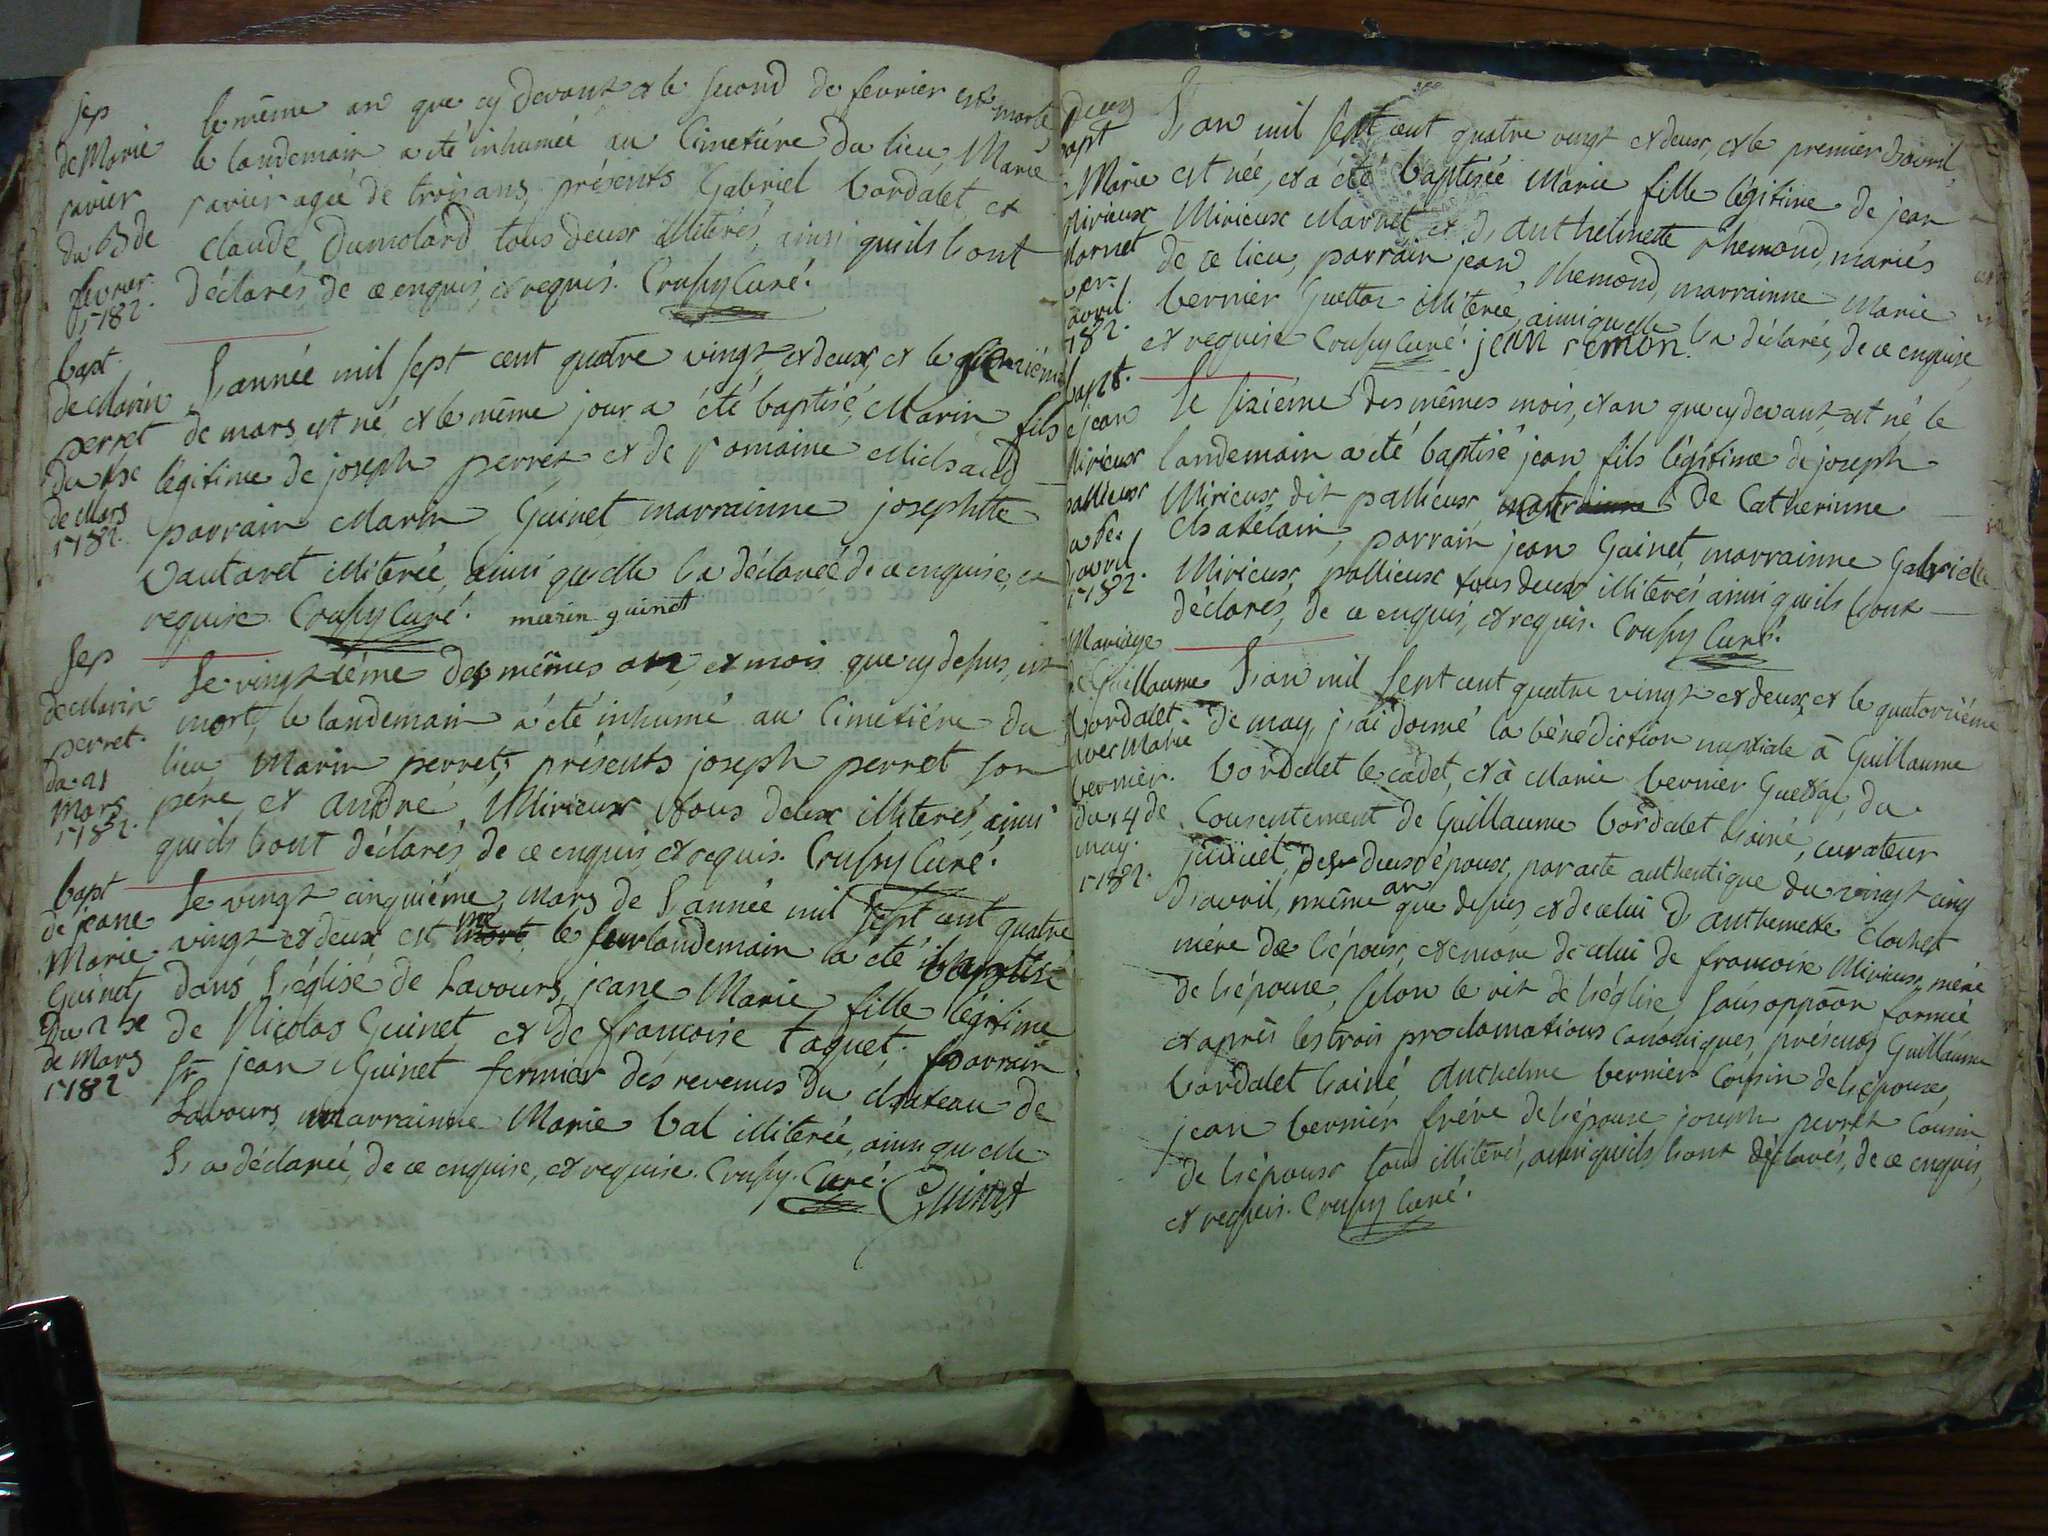 Sep
de Marie
savier
du 3 de
fevrier
1782.
le même an que cy devant et le second de fevrier est morte
le landemain a été inhumée au Cimetiére du lieu, Marie
savier agée de trois ans, présents Gabriel bordalet et
Claude Dumolard tous deux illiterés, ainsi quils l'ont
déclarés de ce enquis, et requis. Crussy Curé.
bapt.
de Marin
perret
du
de Mars
1782.
L'année mil sept cent quatre vingt et deux, et le
de mars est né et le même jour a été baptisé, Marin fils
légitime de joseph perret et de Romaine Michaud
parrain Marin Guinet, marrainne josephtte
Vautaret illiterée, ainsi quelle l'a déclarée de ce enquise, et
requise Crussy Curé. marin guinet
Sep
de Marin
perret.
du 21
Mars
1782.
Le vingtiéme des mêmes an, et mois que cy desus, est
mort, le landemain a été inhumé au Cimetiére du
lieu, Marin perret, présents joseph perret son
pére et André Mirieux tous deux illiterés, ainsi
quils l'ont déclarés, de ce enquis, et requis. Crussy Curé.
bapt
de jeane
Marie
Guinet
du
de Mars
1782
Le vingt cinquiéme mars de L'année mil sept cent quatre
vingt et deux est né le landemain a été baptisé
dans L'église de Lavours jeane Marie fille légitime
de Nicolas Guinet et de francoise taquet. parrain
Sr. jean Guinet fermier des revenus du chateau de
Lavours, marrainne Marie bal illiterée, ainsi quelle
L'a déclarée, de ce enquise, et requise. Crussy. Curé. Guinet
deux
bapt
Marie
Mirieux
Marnet
1er.
avril.
1782.
L'an mil sept cent quatre vingt et deux, et le premier d'avril,
est née, et a été baptisée Marie fille légitime de jean
Mirieux Marnet et d'Anthelmette Rhemond, mariés
de ce lieu, parrain jean Rhemond, marrainne Marie
bernier Guettaz illiterée, ainsi quelle l'a déclarée, de ce enquise
et requise Crussy Curé. jean remon.
bapt.
de jean
Mirieux
pallieux
d'avril
1782.
Le sixiéme des mêmes mois, et an que cy devant, est né le
landemain a été baptisé jean fils légitime de joseph
Mirieux dit pallieux de Catherinne
Chatelain, parrain jean Guinet, marrainne Gabrielle
Mirieux pallieux tous deux illiterés ainsi quils l'ont
déclarés, de ce enquis, et requis. Crussy Curé.
Mariage
de Guillaume
bordalet
avec Marie
bernier.
du 14 de
may.
1782.
L'an mil sept cent quatre vingt et deux, et le quatorziéme
de may, j'ai donné la bénédiction nuptiale à Guillaume
bordalet le cadet, et à Marie bernier Guettaz, du
Consentement de Guillaume bordalet l'ainé, curateur
des deux époux, par acte authentique du vingt cinq
d'avril, même an que desus et de celui d'anthemette Clochet
mére de l'époux, et encore de celui de francoise Mirieux, mére
de l'épouse, selon le rit de l'église, sans oppôôn formée
et aprés les trois proclamations canoniques, présents Guillaume
bordalet l'ainé, Anthelme bernier Cousin de l'épouse,
jean bernier frére de l'épouse joseph perret Cousin
de l'époux tous illiterés, ainsi quils l'ont déclarés, de ce enquis,
et requis. Crussy Curé.